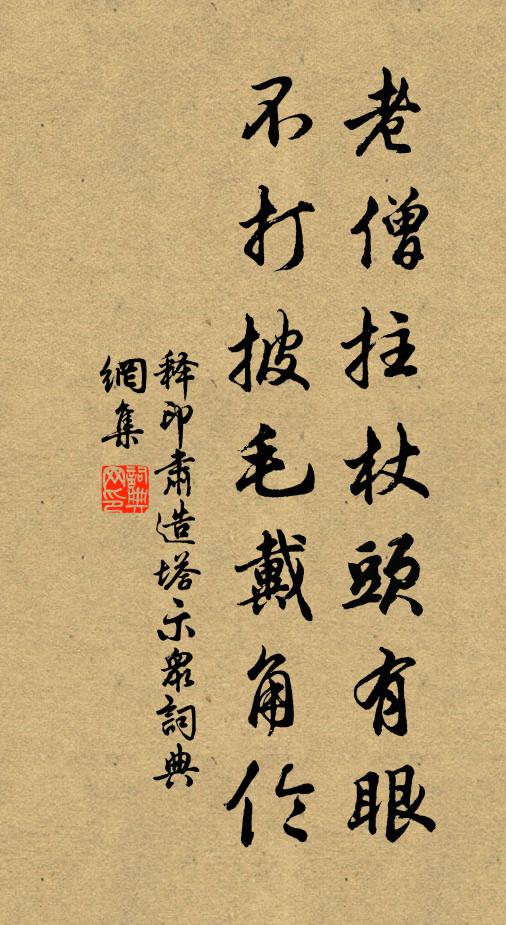 老僧拄杖頭有眼
不打披毛戴角伶
释印肅造塔示眾詞典
網集
詞典网印